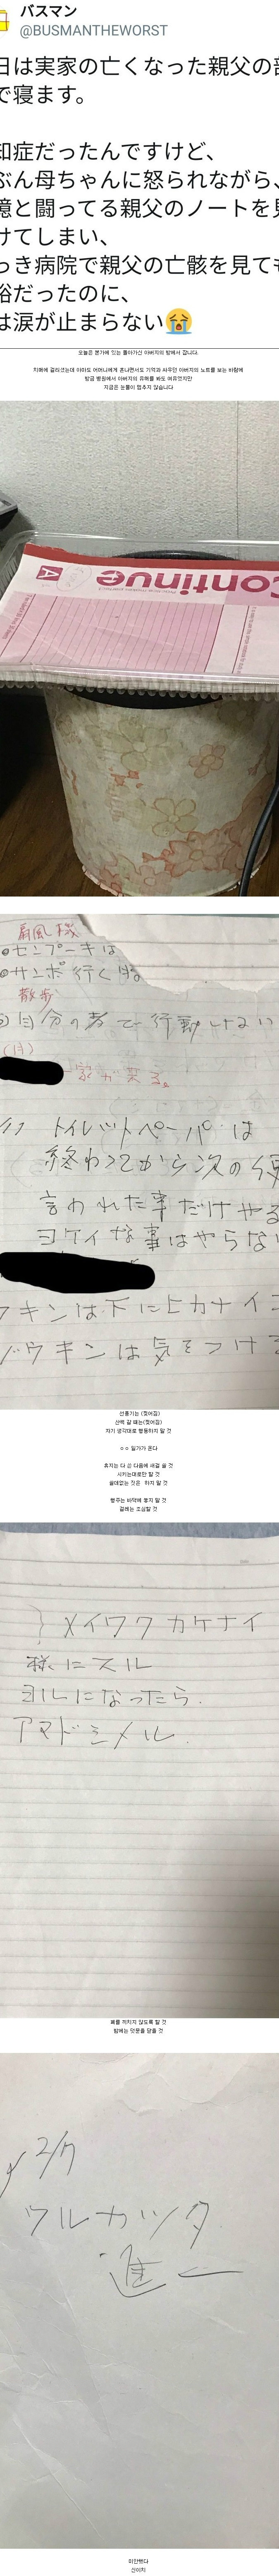 バスマン
@BUSMANTHEWORST
日は実家の亡くなった親父の部
で寝ます。
知症だったんですけど、
ぶん母ちゃんに怒られながら、
憶と闘ってる親父のノートを見
けてしまい、
っき病院で親父の亡骸を見ても
裕だったのに、
は涙が止まらない😭
오늘은 본가에 있는 돌아가신 아버지의 방에서 잡니다.
치매에 걸리셨는데 아마도 어머니에게 혼나면서도 기억과 싸우던 아버지의 노트를 보는 바람에
방금 병원에서 아버지의 유해를 봐도 여유였지만
지금은 눈물이 멈추지 않습니다
Continue
A
扇風機
●センプーキは
●サンポ行く時
散歩
自分の考で行動しない
家が来る。
トイレットペーパーは
終わってから次の
言われた事だけやる
ヨケイな事はやらな
フキンは下にヒカナイ
ゾウキンは気をつける
선풍기는 (찢어짐)
산책 갈 때는(찢어짐)
자기 생각대로 행동하지 말 것
ㅇㅇ 일가가 온다
휴지는 다 쓴 다음에 새걸 쓸 것
시키는대로만 할 것
쓸데없는 것은 하지 말 것
행주는 바닥에 놓지 말 것
걸레는 조심할 것
メイワクカケナイ
様にスル
ヨルになったら.
アマドシメル.
폐를 끼치지 않도록 할 것
밤에는 덧문을 닫을 것
2/7
ワルカッタ
進一
미안했다
신이치